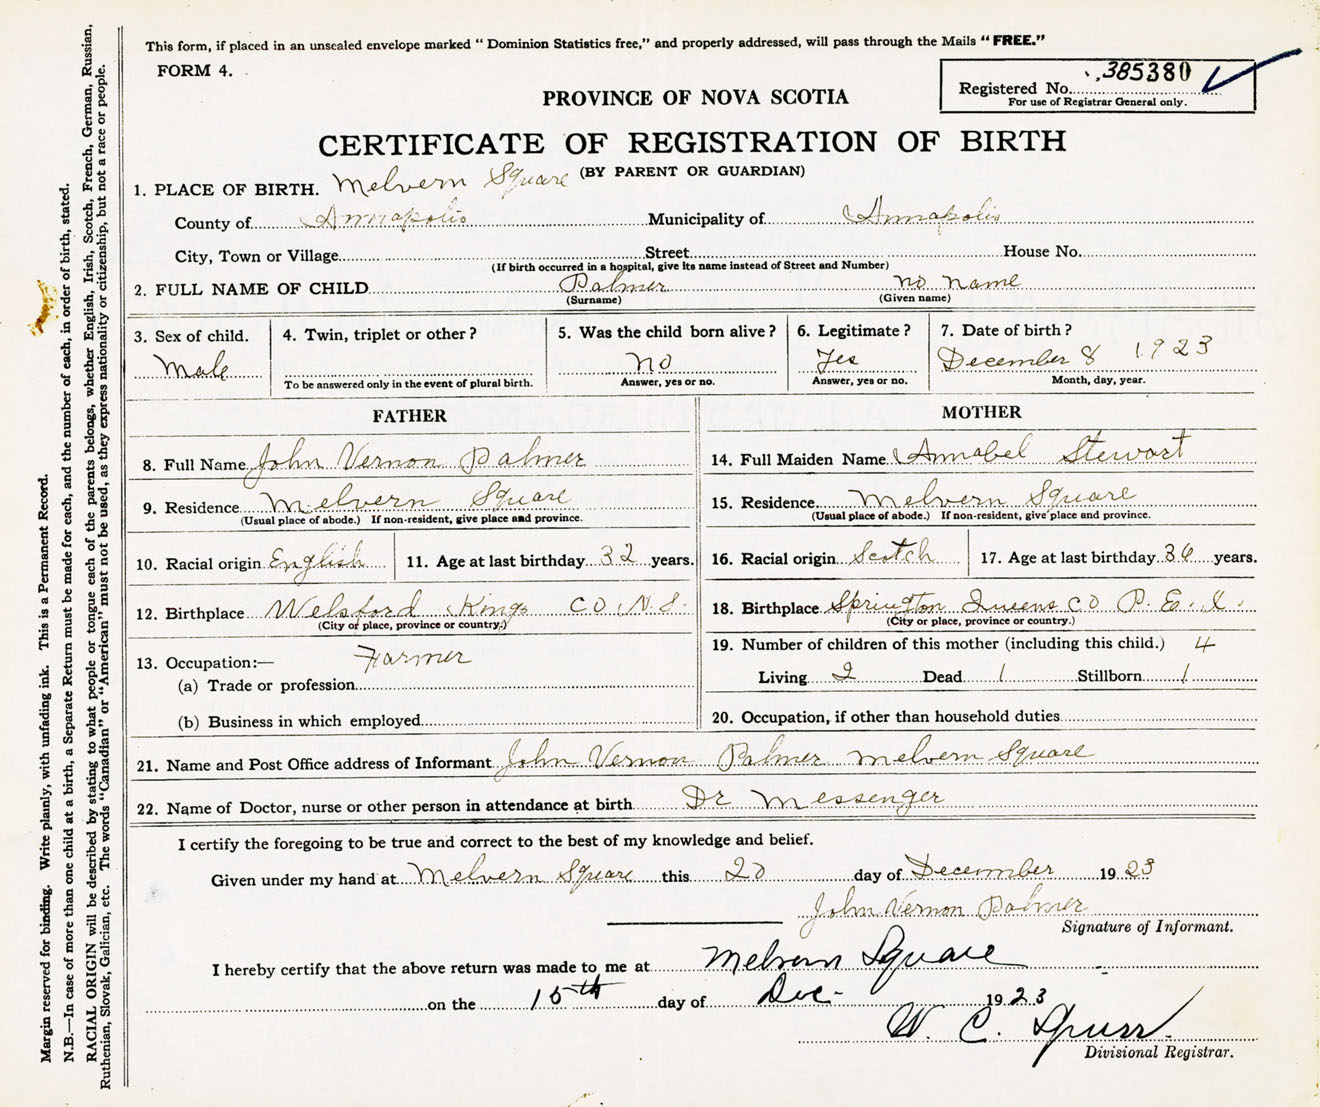 This form, if placed in an unsealed envelope marked “ Dominion Statistics free,” and properly addressed, will pass through the Mails “ FREE.”
FORM 4.
385380
Registered No.
For use of Registrar General only.
PROVINCE OF NOVA SCOTIA
CERTIFICATE OF REGISTRATION OF BIRTH
(BY PARENT OR GUARDIAN)
1. PLACE OF BIRTH. Melvern Square
County of Annapolis Municipality of Annapolis
City, Town or Village Street House No.
(If birth occurred in a hospital, give its name instead of Street and Number)
2. FULL NAME OF CHILD Palmer no name
(Surname) (Given name)
3. Sex of child. 4. Twin, triplet or other ? 5. Was the child born alive ? 6. Legitimate ? 7. Date of birth ?
Male No Yes December 8 1923
To be answered only in the event of plural birth. Answer, yes or no. Answer, yes or no. Month, day, year.
FATHER MOTHER
8. Full Name John Vernon Palmer 14. Full Maiden Name Annabel Stewart
9. Residence Melvern Square 15. Residence Melvern Square
(Usual place of abode.) If non-resident, give place and province. (Usual place of abode.) If non-resident, give place and province.
10. Racial origin English 11. Age at last birthday 32 years. 16. Racial origin Scotch 17. Age at last birthday 36 years.
12. Birthplace Welsford Kings CO. N.S. 18. Birthplace Springton Queens CO P. E. I.
(City or place, province or country.) (City or place, province or country.)
13. Occupation:— Farmer 19. Number of children of this mother (including this child.) 4
(a) Trade or profession Living 2 Dead 1 Stillborn 1
(b) Business in which employed 20. Occupation, if other than household duties
21. Name and Post Office address of Informant John Vernon Palmer Melvern Square
22. Name of Doctor, nurse or other person in attendance at birth Dr Messenger
I certify the foregoing to be true and correct to the best of my knowledge and belief.
Given under my hand at Melvern Square this 20 day of December 1923
John Vernon Palmer
Signature of Informant.
I hereby certify that the above return was made to me at Melvern Square
on the 15th day of Dec. 1923
W. C. Spurr.
Divisional Registrar.
Margin reserved for binding. Write plainly, with unfading ink. This is a Permanent Record.
N.B.—In case of more than one child at a birth, a Separate Return must be made for each, and the number of each, in order of birth, stated.
RACIAL ORIGIN will be described by stating to what people or tongue each of the parents belongs, whether English, Irish, Scotch, French, German, Russian,
Ruthenian, Slovak, Galician, etc. The words “Canadian” or “American” must not be used, as they express nationality or citizenship, but not a race or people.